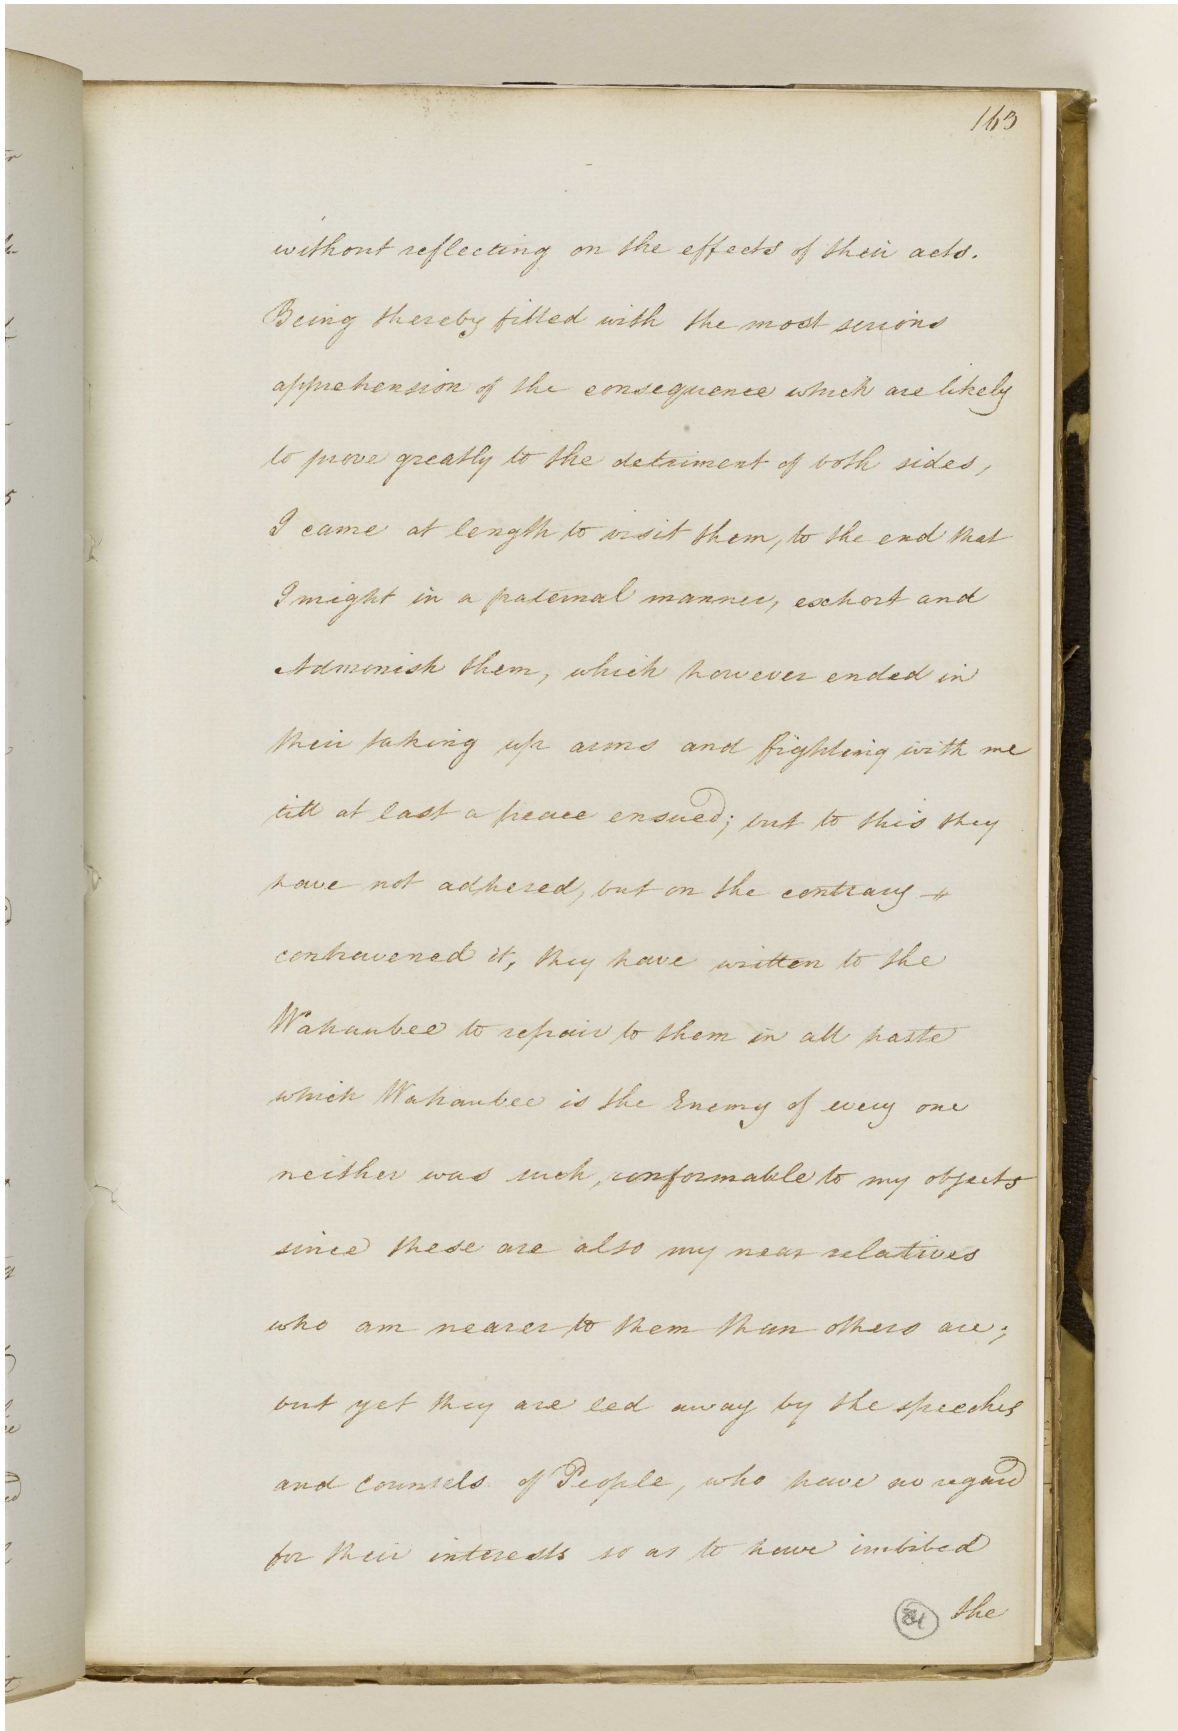 163
without reflecting on the effects of their acts.
Being thereby filled with the most serious
apprehension of the consequence which are likely
to prove greatly to the detriment of both sides,
I came at length to visit them, to the end that
I might in a paternal manner, exhort and
Admonish them, which however ended in
their taking up arms and fighting with me
till at last a peace ensued; but to this they
have not adhered, but on the contrary
contravened it, they have written to the
Wahaubee to repair to them in all haste
which Wahaubee is the Enemy of every one
neither was such, conformable to my objects
since these are also my near relatives
who am nearer to them than others are;
but yet they are led away by the speeches
and counsels of People, who have no regard
for their interests so as to have imbibed
the